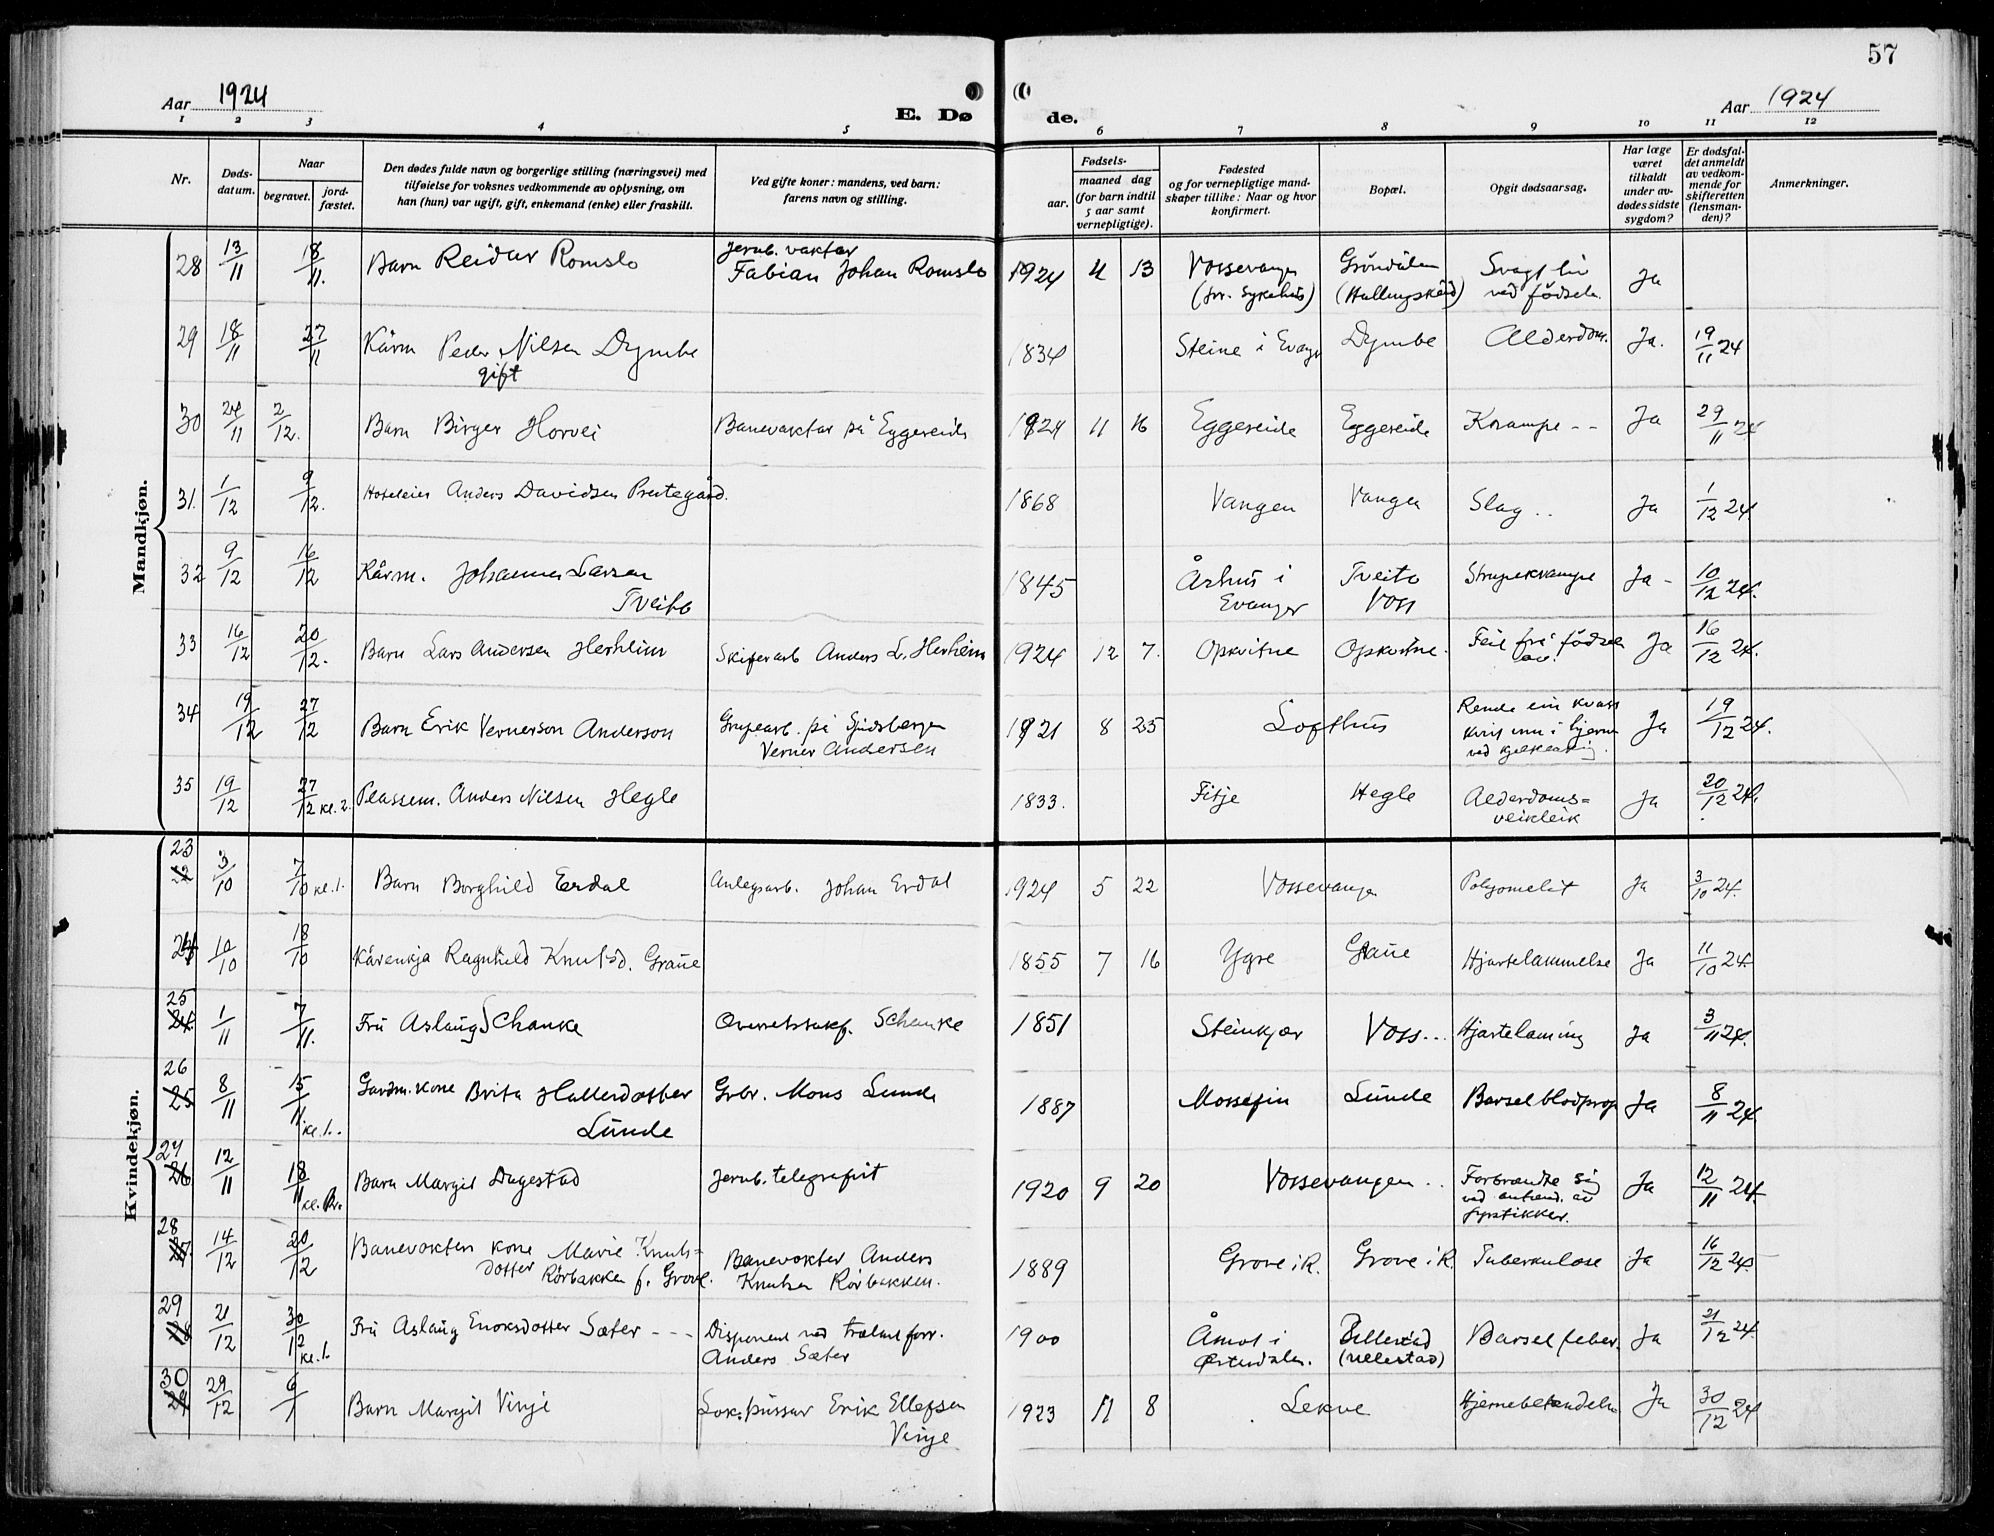 57
Aar 1924
E. Dø
de.
Aar 1924
1 2 3 4 5 6 7 8 9 10 11 12
Nr.
Døds-
datum.
Naar
begravet.
jord-
fæstet.
Den dødes fulde navn og borgerlige stilling (næringsvei) med
tilføielse for voksnes vedkommende av oplysning, om
han (hun) var ugift, gift, enkemand (enke) eller fraskilt.
Ved gifte koner: mandens, ved barn:
farens navn og stilling.
Fødsels-
aar.
maaned dag
(for barn indtil
5 aar samt
vernepligtige).
Fødested
og for vernepligtige mand-
skaper tillike: Naar og hvor
konfirmert.
Bopæl.
Opgit dødsaarsag.
Har læge
været
tilkaldt
under av-
dødes sidste
sygdom?
Er dødsfal-
det anmeldt
av vedkom-
mende for
skifteretten
(lensman-
den)?
Anmerkninger.
Mandkjøn.
28 13/11 18/11. Barn Reidar Romslo Jernb. vaktar
Fabian Johan Romslo 1924 4 13 Vossevangen Gröndalen Svagt liv Ja
(Hallingskeid) ved födselen.
29 18/11 27/11 Kårm Peder Nilsen Dymbe 1834 Steine i Evang. Dymbe Alderdom. Ja. 19/11 24
gift
30 24/11 2/12. Barn Birger Horvei Banevaktar på Eggereide 1924 11 16 Eggereide Eggereide Krampe -- Ja 29/11 24
31. 1/12 9/12. Hoteleier Anders Davidsen Prestegård. 1868 Vangen Vangen Slag .. Ja 1/12 24.
32 9/12 16/12 Kårm. Johannes Larsen 1845 Århus i Tveito Strupekrampe Ja - 10/12 24.
Tveito Evanger Voss
33 16/12 20/12. Barn Lars Andersen Herheim Skiferarb Anders L. Herheim 1924 12 7. Opkvitne Opkvitne. Feil frå födsel Ja 16/12 24.
av.
34 19/12 27/12 Barn Erik Vernerson Anderson Grupearb. på Spidsbergen
Verner Andersen 1921 8 25 Lofthus Rende ein kvass
kvist inn i hjernen
ved kjelkeaking. Ja 19/12 24.
35 19/12 27/12 kl. 2. Plassem. Anders Nilsen Hegle 1833. Fitje Hegle Alderdoms=
veikleik Ja 20/12 24.
Kvindekjøn.
23 3/10 7/10 kl. 1. Barn Borghild Erdal Anlegsarb. Johan Erdal 1924 5 22 Vossevangen Polyomelit Ja 3/10 24.
24 10/10 18/10 Kårenkja Ragnhild Knutsd. Graue 1855 7 16 Ygre Graue Hjartelammelse Ja 11/10 24.
25
24. 1/11 7/11. Fru Aslaug Schanke Overretssakf. Schanke 1851 Steinkjær Voss... Hjartelaming Ja 3/11 24.
26
25 8/11 15/11 kl. 1. Gardm. kone Brita Hallesdotter Grbr. Mons Lunde 1887 Mossefin Lunde Barselblodprop Ja 8/11 24.
Lunde
27
26 12/11 18/11 Barn Margit Dagestad Jernb. telegrafist 1920 9 20 Vossevangen .. Forbrændte sig
ved antend. av
fyrstikker. Ja 12/11 24
28
27. 14/12 20/12 Banevokters kone Marie Knuts=
dotter Rörbakken f. Grove. Banevokter Anders
Knutsen Rörbakken. 1889 Grove i R. Grove i R. Tuberkulose Ja 16/12 24.
29
28 21/12 30/12 kl. 1. Fru Aslaug Enoksdotter Sæter --- Disponent ved trælast forr.
Anders Sæter 1900 Åmot i
Østerdalen. (Ullestad) Barselfeber. Ja 21/12 24.
30
29 29/12 6/1 Barn Margit Vinje Lok. pussar Erik Ellefsen
Vinje 1923 11 8 Lekve Hjernebetendelse Ja 30/12 24